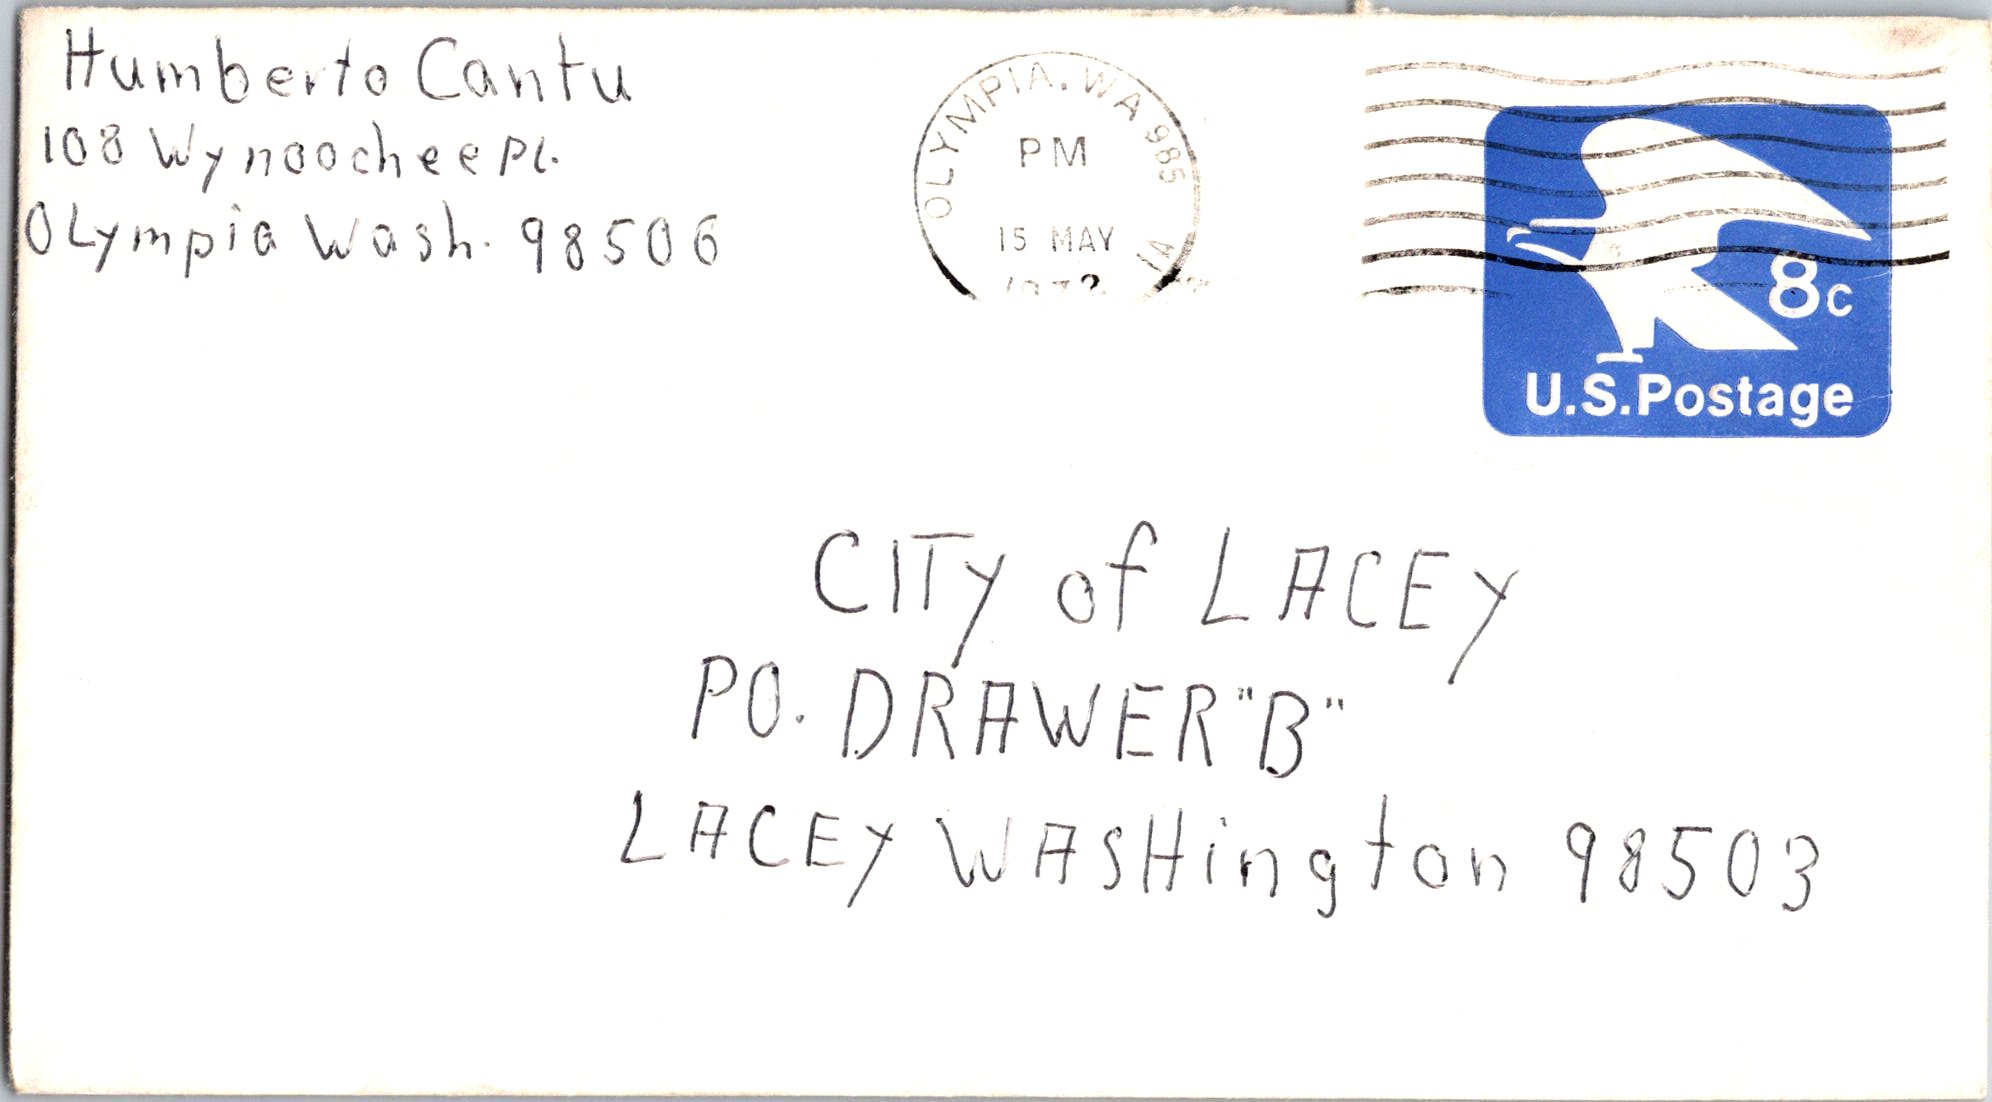 Humberto Cantu
108 Wynoochee PL.
OLympia Wash. 98506
OLYMPIA, WA 985
PM
15 MAY
8c
U.S. Postage
CITY of LACEY
PO. DRAWER "B"
LACEY WASHington 98503